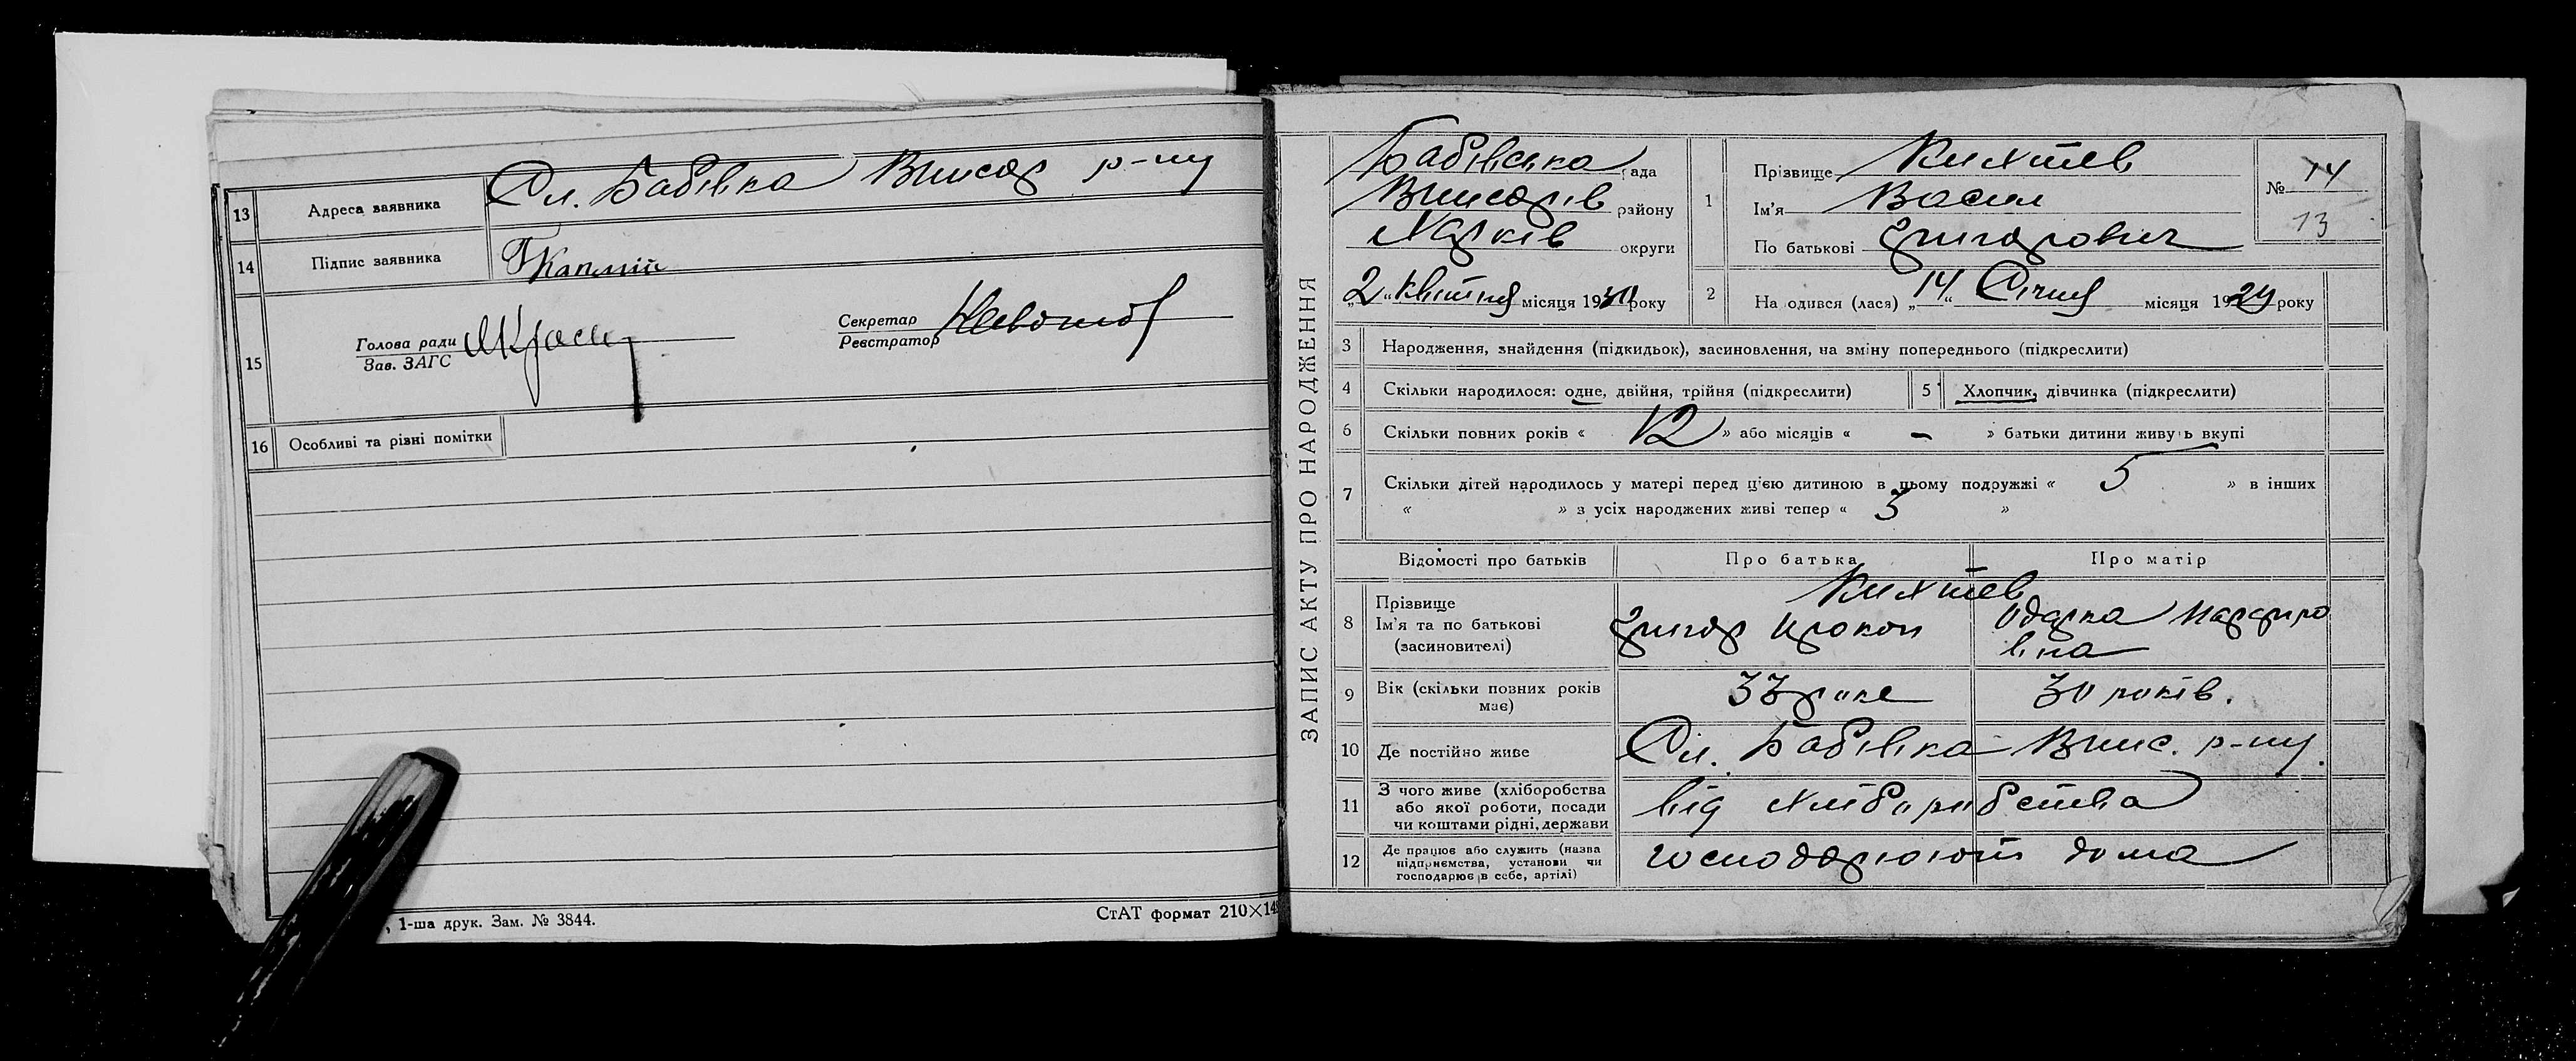 13 Адреса заявника Сл. Бабівка Вписар р-ну
14 Підпис заявника
15 Голова ради
Зав. ЗАГС
Секретар
Реєстратор
16 Особливі та різні помітки
, 1-ша друк. Зам. № 3844.
СтАТ формат 210×14
ЗАПИС АКТУ ПРО НАРОДЖЕННЯ
Бабівська рада
району
Харків округи
„2“ квітня місяця 1930 року
1 Прізвище
Ім'я Васил
По батькові Григорович
№ 14
13
2 На одився (лася) „14“ Січня місяця 1929 року
3 Народження, знайдення (підкидьок), засиновлення, на зміну попереднього (підкреслити)
4 Скільки народилося: одне, двійня, трійня (підкреслити)
5 Хлопчик, дівчинка (підкреслити)
6 Скільки повних років « 12 » або місяців « - » батьки дитини живуть вкупі
7 Скільки дітей народилось у матері перед ц'єю дитиною в цьому подружжі « 5 » в інших
« » з усіх народжених живі тепер « 3 »
Відомості про батьків Про батька Про матір
8 Прізвище
Ім'я та по батькові Григор Прокоп Одарка
(засиновителі)
9 Вік (скільки повних років має) 33 роки 30 років.
10 Де постійно живе Сл. Бабівка Впис. р-ну.
11 З чого живе (хліборобства
або якої роботи, посади
чи коштами рідні, держави від хліборобства
12 Де працює або служить (назва
підприємства, установи чи
господарює в себе, артілі) господарюють дома